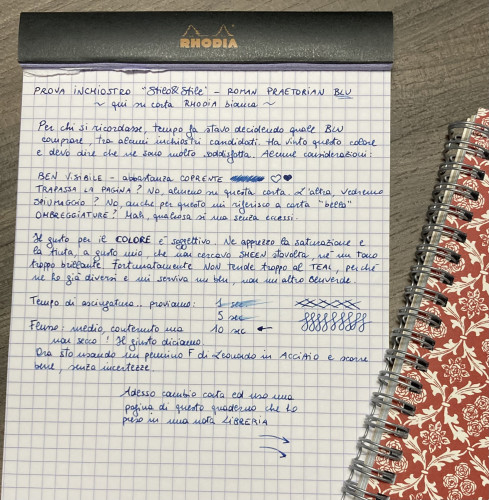 RHODIA
PROVA INCHIOSTRO "Stilo&Stile" - ROMAN PRAETORIAN BLU
~ qui su carta RHODIA bianca ~
Per chi si ricordasse, tempo fa stavo decidendo quale BLU
comprare, tra alcuni inchiostri candidati. Ha vinto questo colore
e devo dire che ne sono molto soddisfatta. Alcune considerazioni:
BEN VISIBILE - abbastanza COPRENTE
TRAPASSA LA PAGINA? No, almeno su questa carta. L'altra, vedremo
SPIUMAGGIO? No, anche per questo mi riferisco a carta "bella"
OMBREGGIATURE? Mah, qualcosa sì ma senza eccessi.
Il gusto per il COLORE è soggettivo. Ne apprezzo la saturazione e
la tinta, a gusto mio, che non cercavo SHEEN stavolta, né un tono
troppo brillante. Fortunatamente NON tende troppo al TEAL, perché
ne ho già diversi e mi serviva un blu, non un altro bluverde.
Tempo di asciugatura.. proviamo: 1 sec
5 sec
10 sec ←
Flusso: medio, contenuto ma
mai secco! Il giusto diciamo.
Ora sto usando un pennino F di Leonardo in Acciaio e scorre
bene, senza incertezze.
Adesso cambio carta ed uso una
pagina di questo quaderno che ho
preso in una nota LIBRERIA